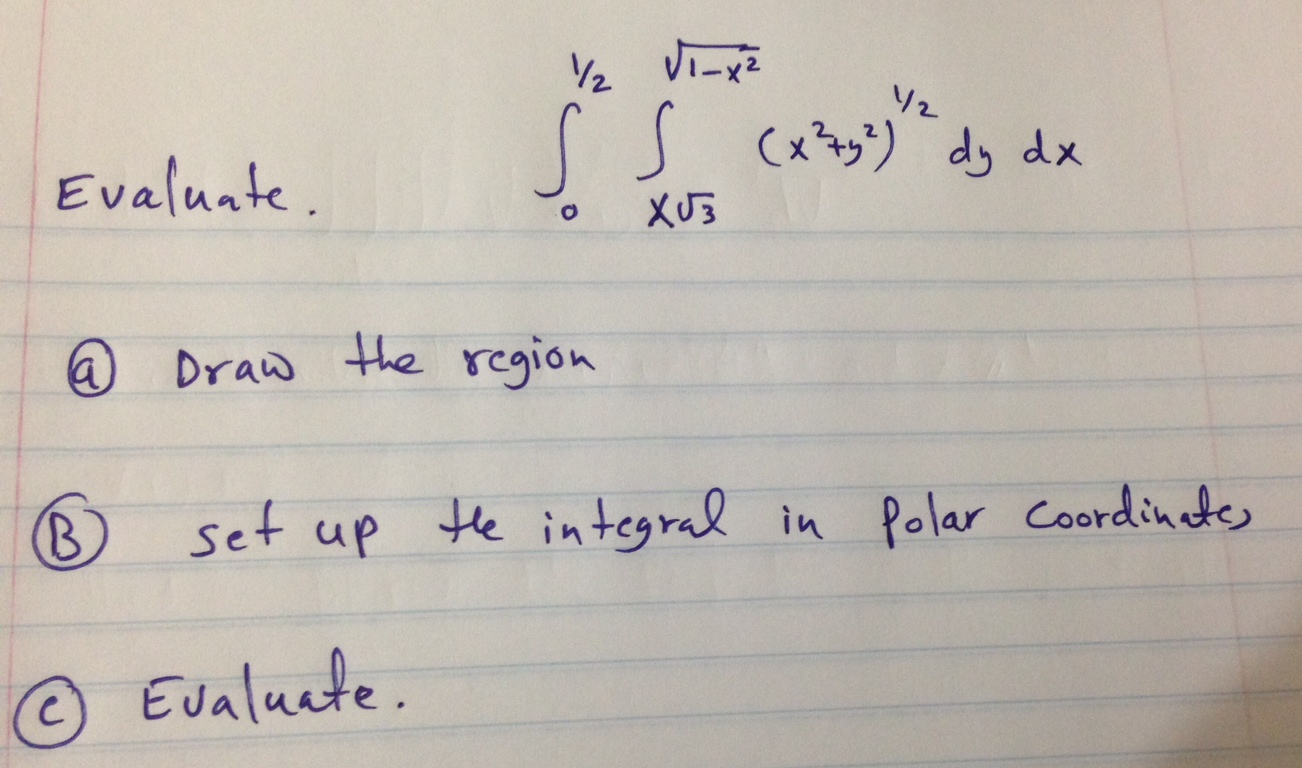 Evaluate. ∫₀^{1/2} ∫_{x√3}^{√(1-x²)} (x²+y²)^{1/2} dy dx
ⓐ Draw the region
Ⓑ set up the integral in Polar Coordinates
Ⓒ Evaluate.